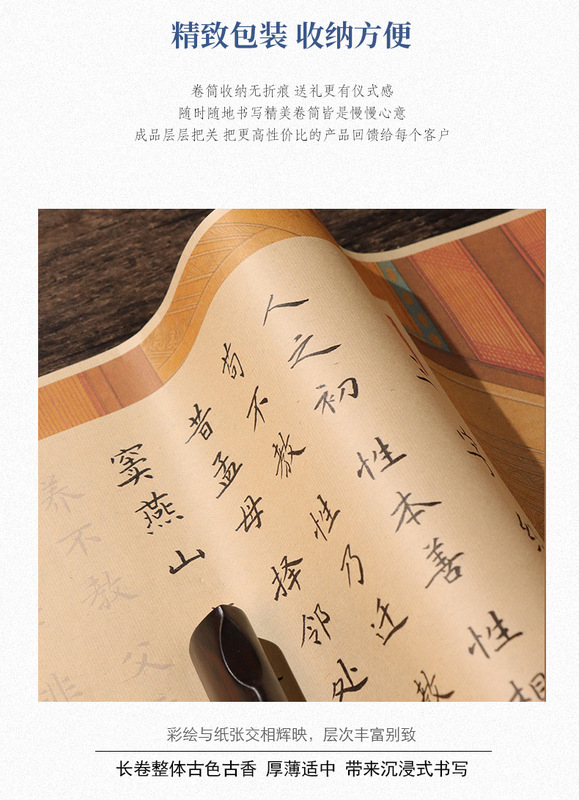 精致包装 收纳方便
卷筒收纳无折痕 送礼更有仪式感
随时随地书写精美卷筒皆是慢慢心意
成品层层把关 把更高性价比的产品回馈给每个客户
人之初性本善性相
苟不教性乃迁教
昔孟母择邻处
窦燕山
养不教父
彩绘与纸张交相辉映，层次丰富别致
长卷整体古色古香 厚薄适中 带来沉浸式书写